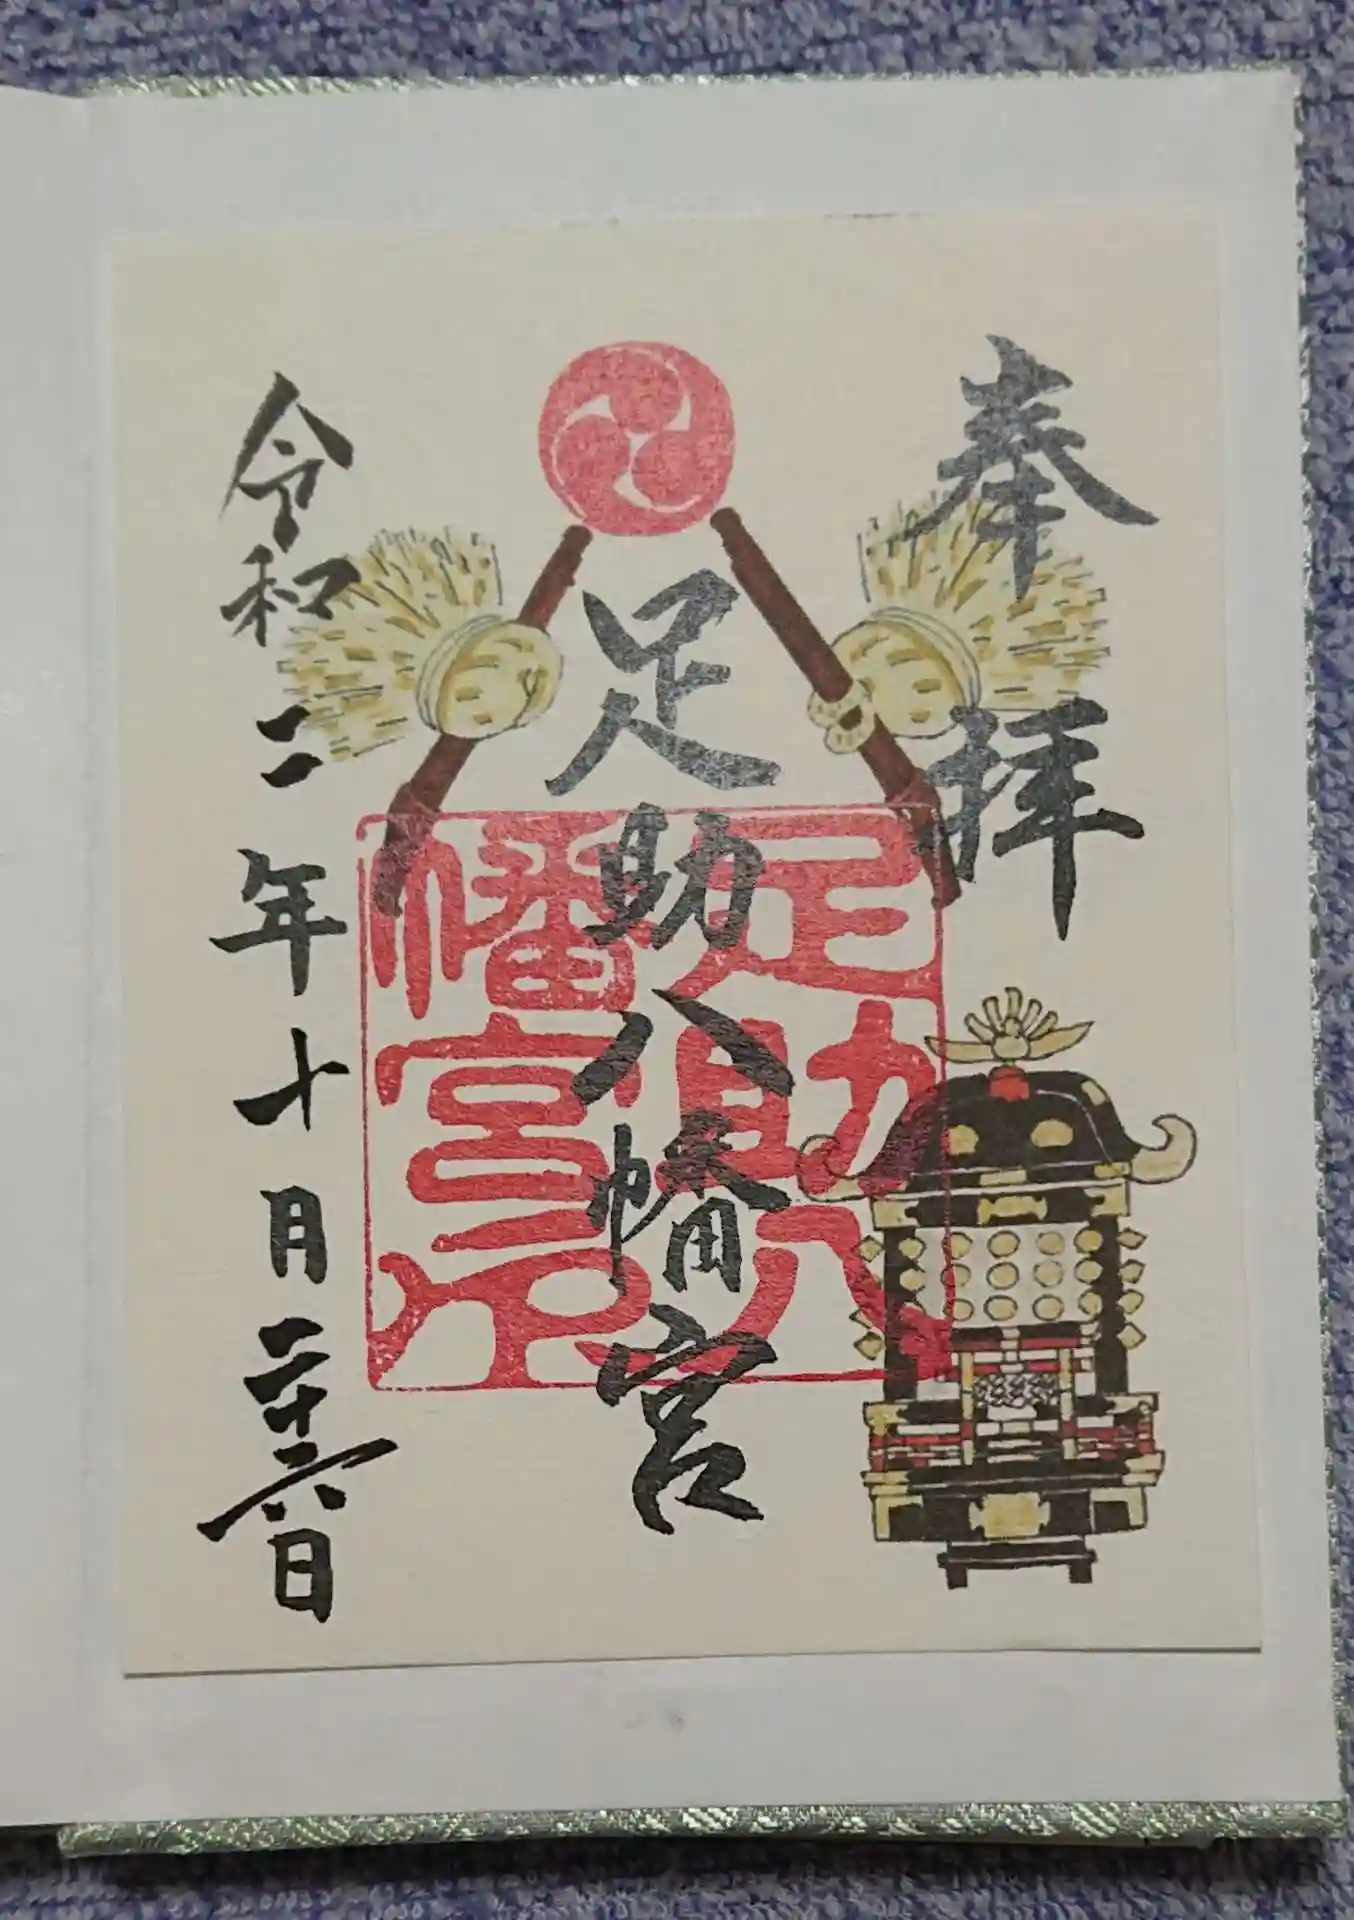 奉拝
足助八幡宮
足助八
幡宮印
令和二年十月二十六日